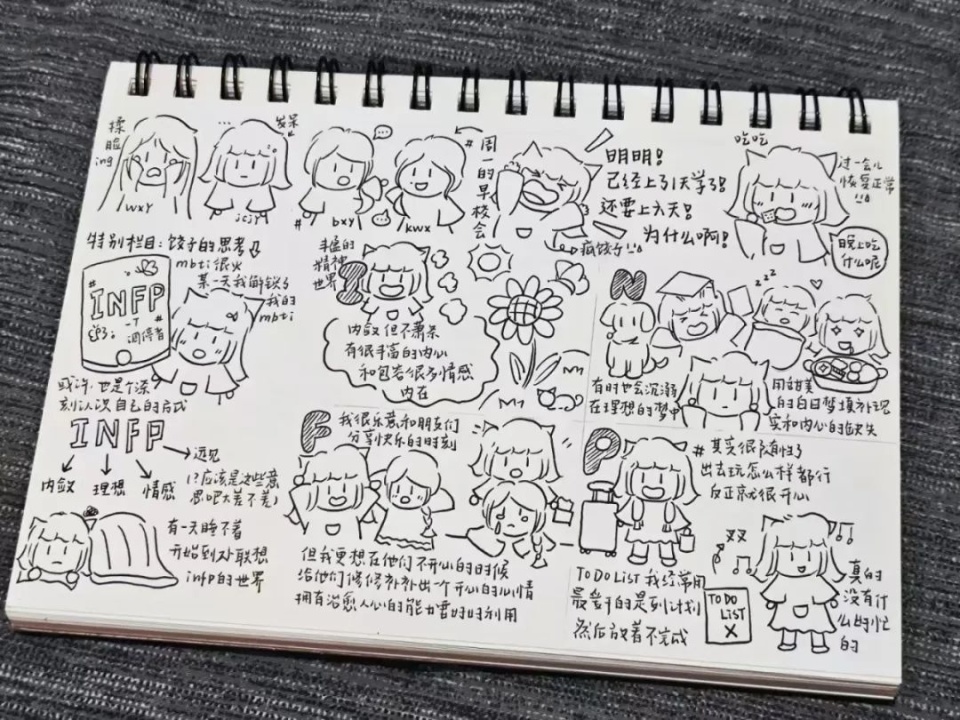 揉
脸
ing
wxy
...
发呆
jcjy
bxy
kwx
#周一的早校会
明明!
已经上了1天学了!
还要上六天!
为什么啊!
疯饺子
吃吃
过一会儿
恢复正常
晚上吃
什么呢
特别栏目:饺子的思考
mbti很火
某一天我解锁了
我的
mbti
INFP
-T
调停者
或许,也是个深
刻认识自己的方式
INFP
内敛
理想
情感
远见
(?应该是这些意
思吧大差不差)
有一天睡不着
开始到处联想
infp的世界
丰富的
精神
世界
I
内敛但不肃杀
有很丰富的内心
和包容很多情感
内在
N
zz
有时也会沉溺
在理想的梦中
用甜美
的白日梦填补现
实和内心的缺失
F
我很乐意和朋友们
分享快乐的时刻
但我更想在他们不开心的时候
给他们修修补补出一个开心的心情
拥有治愈人心的能力要好好利用
P
#其实很随性了
出去玩怎么样都行
反正就很开心
TO DO LIST 我经常用
最多干的是列计划
然后放着不完成
TO DO
LIST
X
真的
没有什
么好忙
的